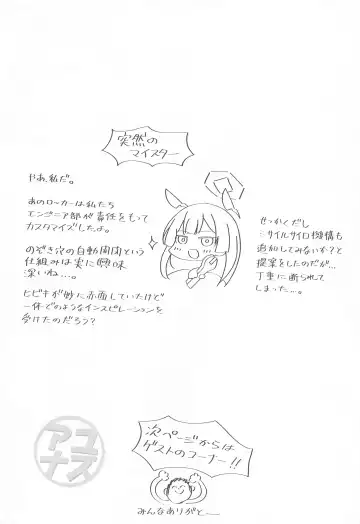 突然の
マイスター
やあ、私だ。
あのロッカーは私たち
エンジニア部が責任をもって
カスタマイズしたよ。
のぞき穴の自動開閉という
仕組みは実に興味
深いね…。
ヒビキが妙に赤面していたけど
一体どのようなインスピレーションを
受けたのだろう?
せっかくだし
ミサイルサイロ機構も
追加してみないか?と
提案をしたのだが…
丁重に断られて
しまった…。
次ページからは
ゲストのコーナー!!
みんなありがと―
アユ
ナズ